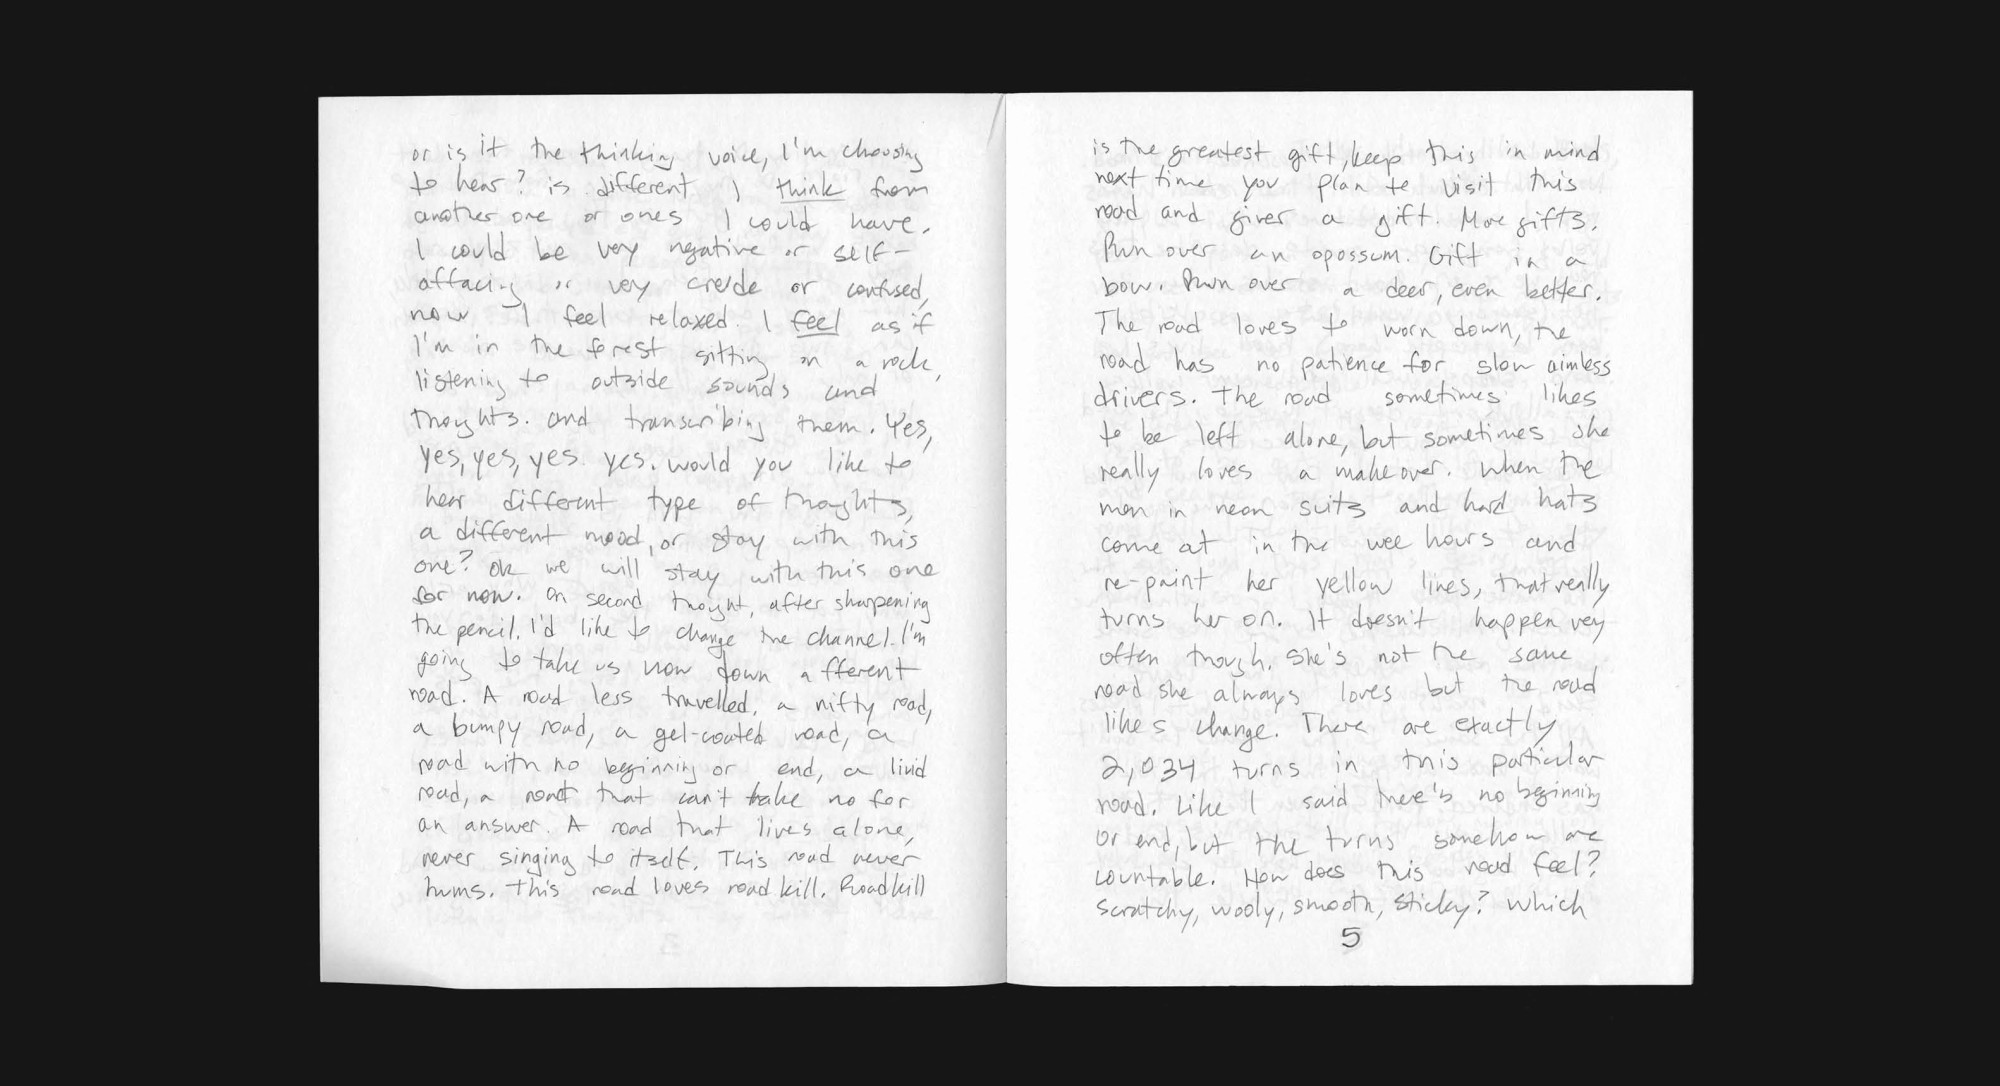 or is it the thinking voice, I'm choosing
to hear? is different, I think from
another one or ones I could have.
I could be very negative or self-
affacing or very crude or confused,
now I feel relaxed. I feel as if
I'm in the forest sitting on a rock,
listening to outside sounds and
thoughts. and transcribing them. Yes,
yes, yes, yes. yes. would you like to
hear different type of thoughts,
a different mood, or stay with this
one? ok we will stay with this one
for now. On second thought, after sharpening
the pencil. I'd like to change the channel. I'm
going to take us now down a fferent
road. A road less travelled, a nifty road,
a bumpy road, a gel-coated road, a
road with no beginning or end, a livid
road, a road that can't take no for
an answer. A road that lives alone,
never singing to itself. This road never
hums. This road loves road kill. Roadkill
is the greatest gift, keep this in mind
next time you plan to visit this
road and giver a gift. More gifts.
Run over an opossum. Gift in a
bow. Run over a deer, even better.
The road loves to worn down, the
road has no patience for slow aimless
drivers. The road sometimes likes
to be left alone, but sometimes she
really loves a makeover. When the
men in neon suits and hard hats
come at in the wee hours and
re-paint her yellow lines, that really
turns her on. It doesn't happen very
often though. She's not the same
road she always loves but the road
likes change. There are exactly
2,034 turns in this particular
road. Like I said there's no beginning
or end, but the turns somehow are
countable. How does this road feel?
Scratchy, wooly, smooth, sticky? Which
5